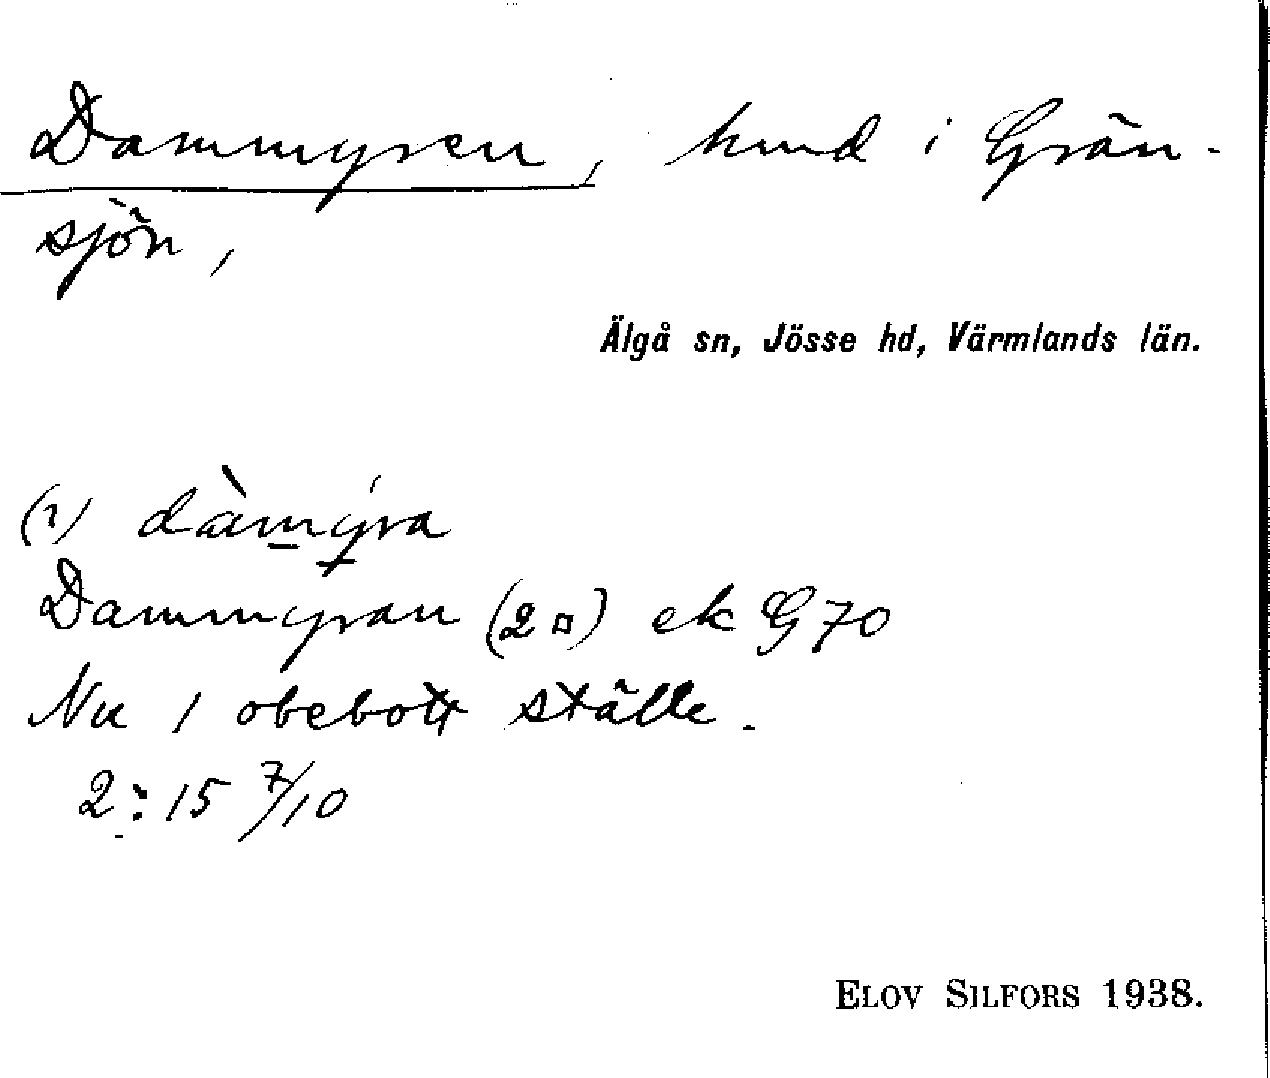 Dammyren, hmd i Grän-
sjön,
Älgå sn, Jösse hd, Värmlands län.
(1) dàmýra
Dammyran (2 ¤) ek G 70
Nu 1 obebott ställe.
2:15 7/10
ELOV SILFORS 1938.